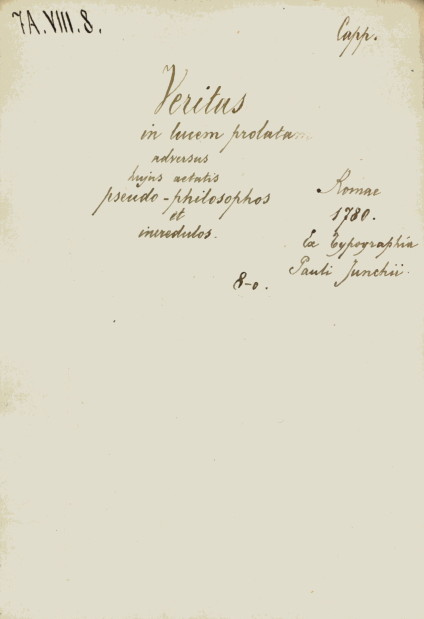 7A.VIII.8.
Capp.
Veritus
in lucem prolata
adversus
hujus aetatis
pseudo-philosophos
et
incredulos.
Romae
1780.
Ex Typographia
Pauli Junchii.
8-o.